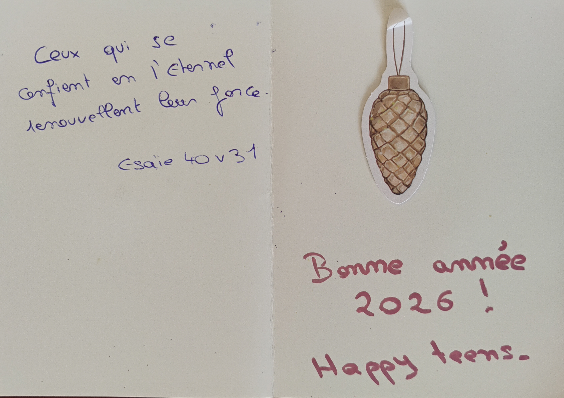 Ceux qui se
confient en l'Eternel
renouvellent leur force.
Esaïe 40 v 31
Bonne année
2026 !
Happy teens.